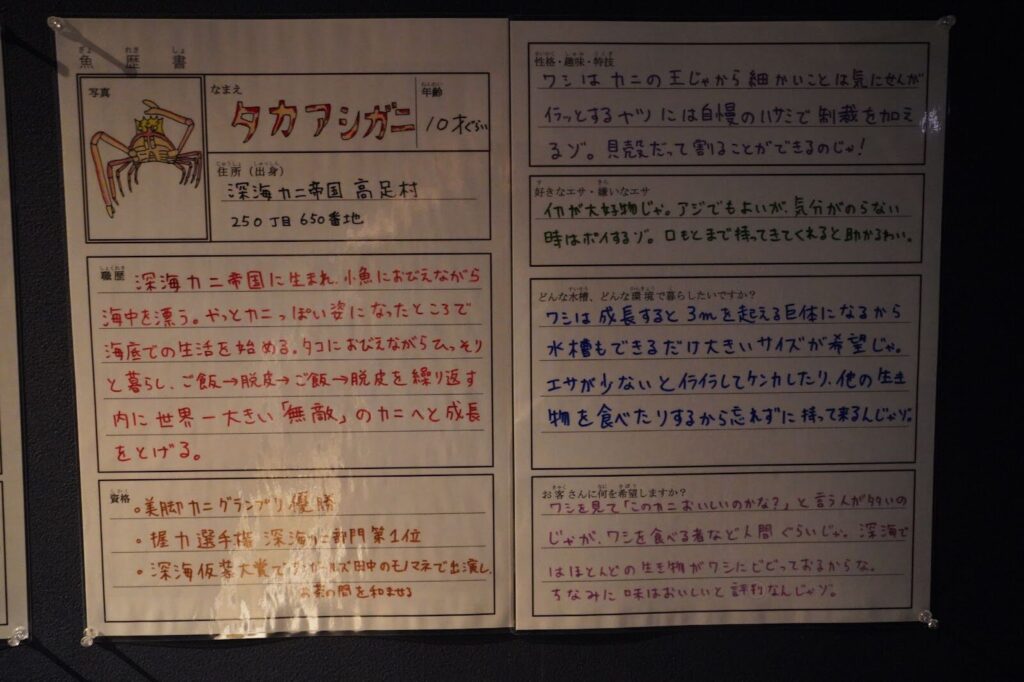 魚歴書
ぎょ れき しょ
写真
なまえ
タカアシガニ
年齢
ねんれい
10才ぐらい
じゅうしょ しゅっしん
住所(出身)
深海カニ帝国 高足村
250丁目 650番地
しょくれき
職歴
深海カニ帝国に生まれ、小魚におびえながら
海中を漂う。やっとカニっぽい姿になったところで
海底での生活を始める。タコにおびえながらひっそり
と暮らし、ご飯→脱皮→ご飯→脱皮を繰り返す
内に世界一大きい「無敵」のカニへと成長
をとげる。
しかく
資格
・美脚カニグランプリ優勝
・握力選手権 深海カニ部門第1位
・深海仮装大賞で 田中のモノマネで出演し、
お茶の間を和ませる
せいかく しゅみ とくぎ
性格・趣味・特技
ワシはカニの王じゃから細かいことは気にせんが
イラっとするヤツには自慢のハサミで制裁を加え
るゾ。貝殻だって割ることができるのじゃ!
す きら
好きなエサ・嫌いなエサ
イカが大好物じゃ。アジでもよいが、気分がのらない
時はポイするゾ。口もとまで持ってきてくれると助かるわい。
すいそう かんきょう く
どんな水槽、どんな環境で暮らしたいですか?
ワシは成長すると3mを超える巨体になるから
水槽もできるだけ大きいサイズが希望じゃ。
エサが少ないとイライラしてケンカしたり、他の生き
物を食べたりするから忘れずに持って来るんじゃゾ。
きゃく なに きぼう
お客さんに何を希望しますか?
ワシを見て「このカニおいしいのかな?」と言う人が多いの
じゃが、ワシを食べる者など人間ぐらいじゃ。深海で
はほとんどの生き物がワシにビビっておるからな。
ちなみに味はおいしいと評判なんじゃゾ。